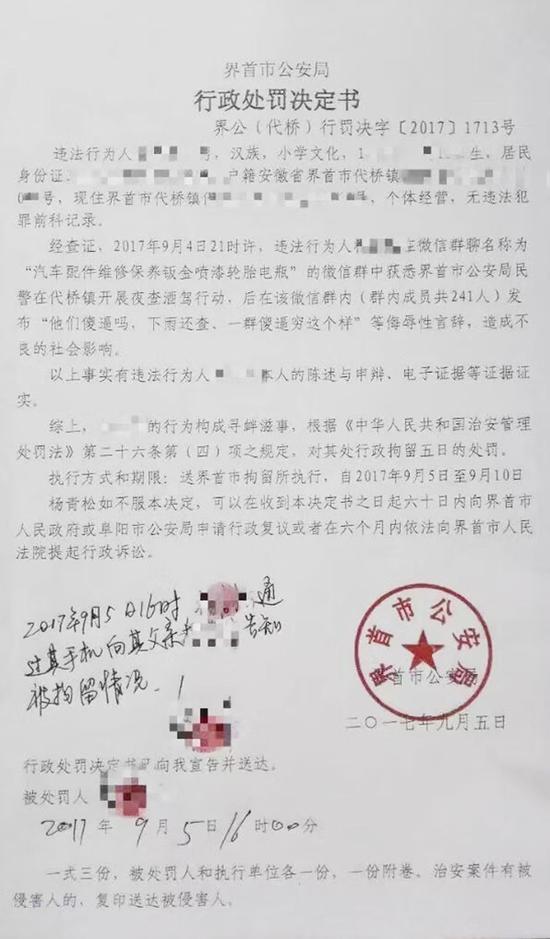 界首市公安局
行政处罚决定书
界公（代桥）行罚决字〔2017〕1713号
违法行为人 号，汉族，小学文化，1 生，居民
身份证 户籍安徽省界首市代桥镇
号，现住界首市代桥镇 ，个体经营，无违法犯
罪前科记录。
经查证，2017年9月4日21时许，违法行为人 在微信群聊名称为
“汽车配件维修保养钣金喷漆轮胎电瓶”的微信群中获悉界首市公安局民
警在代桥镇开展夜查酒驾行动，后在该微信群内（群内成员共241人）发
布“他们傻逼吗，下雨还查、一群傻逼穷这个样”等侮辱性言辞，造成不
良的社会影响。
以上事实有违法行为人 本人的陈述与申辩、电子证据等证据证
实。
综上， 的行为构成寻衅滋事，根据《中华人民共和国治安管理
处罚法》第二十六条第（四）项之规定，对其处行政拘留五日的处罚。
执行方式和期限：送界首市拘留所执行，自2017年9月5日至9月10日
杨青松如不服本决定，可以在收到本决定书之日起六十日内向界首市
人民政府或阜阳市公安局申请行政复议或者在六个月内依法向界首市人民
法院提起行政诉讼。
2017年9月5日16时 通
过其手机向其父亲 告知
被拘留情况.
界首市公安局
首市公安局
二〇一七年九月五日
行政处罚决定书已向我宣告并送达。
被处罚人
2017年9月5日16时00分
一式三份，被处罚人和执行单位各一份，一份附卷。治安案件有被
侵害人的，复印送达被侵害人。